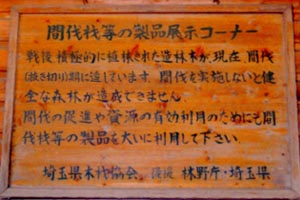 間伐材等の製品展示コーナー
戦後積極的に植林された造林木が、現在、間伐
(抜き切り)期に達しています。間伐を実施しないと健
全な森林が造成できません。
間伐の促進や資源の有効利用のためにも間
伐材等の製品を大いに利用して下さい。
埼玉県木材協会 後援 林野庁・埼玉県